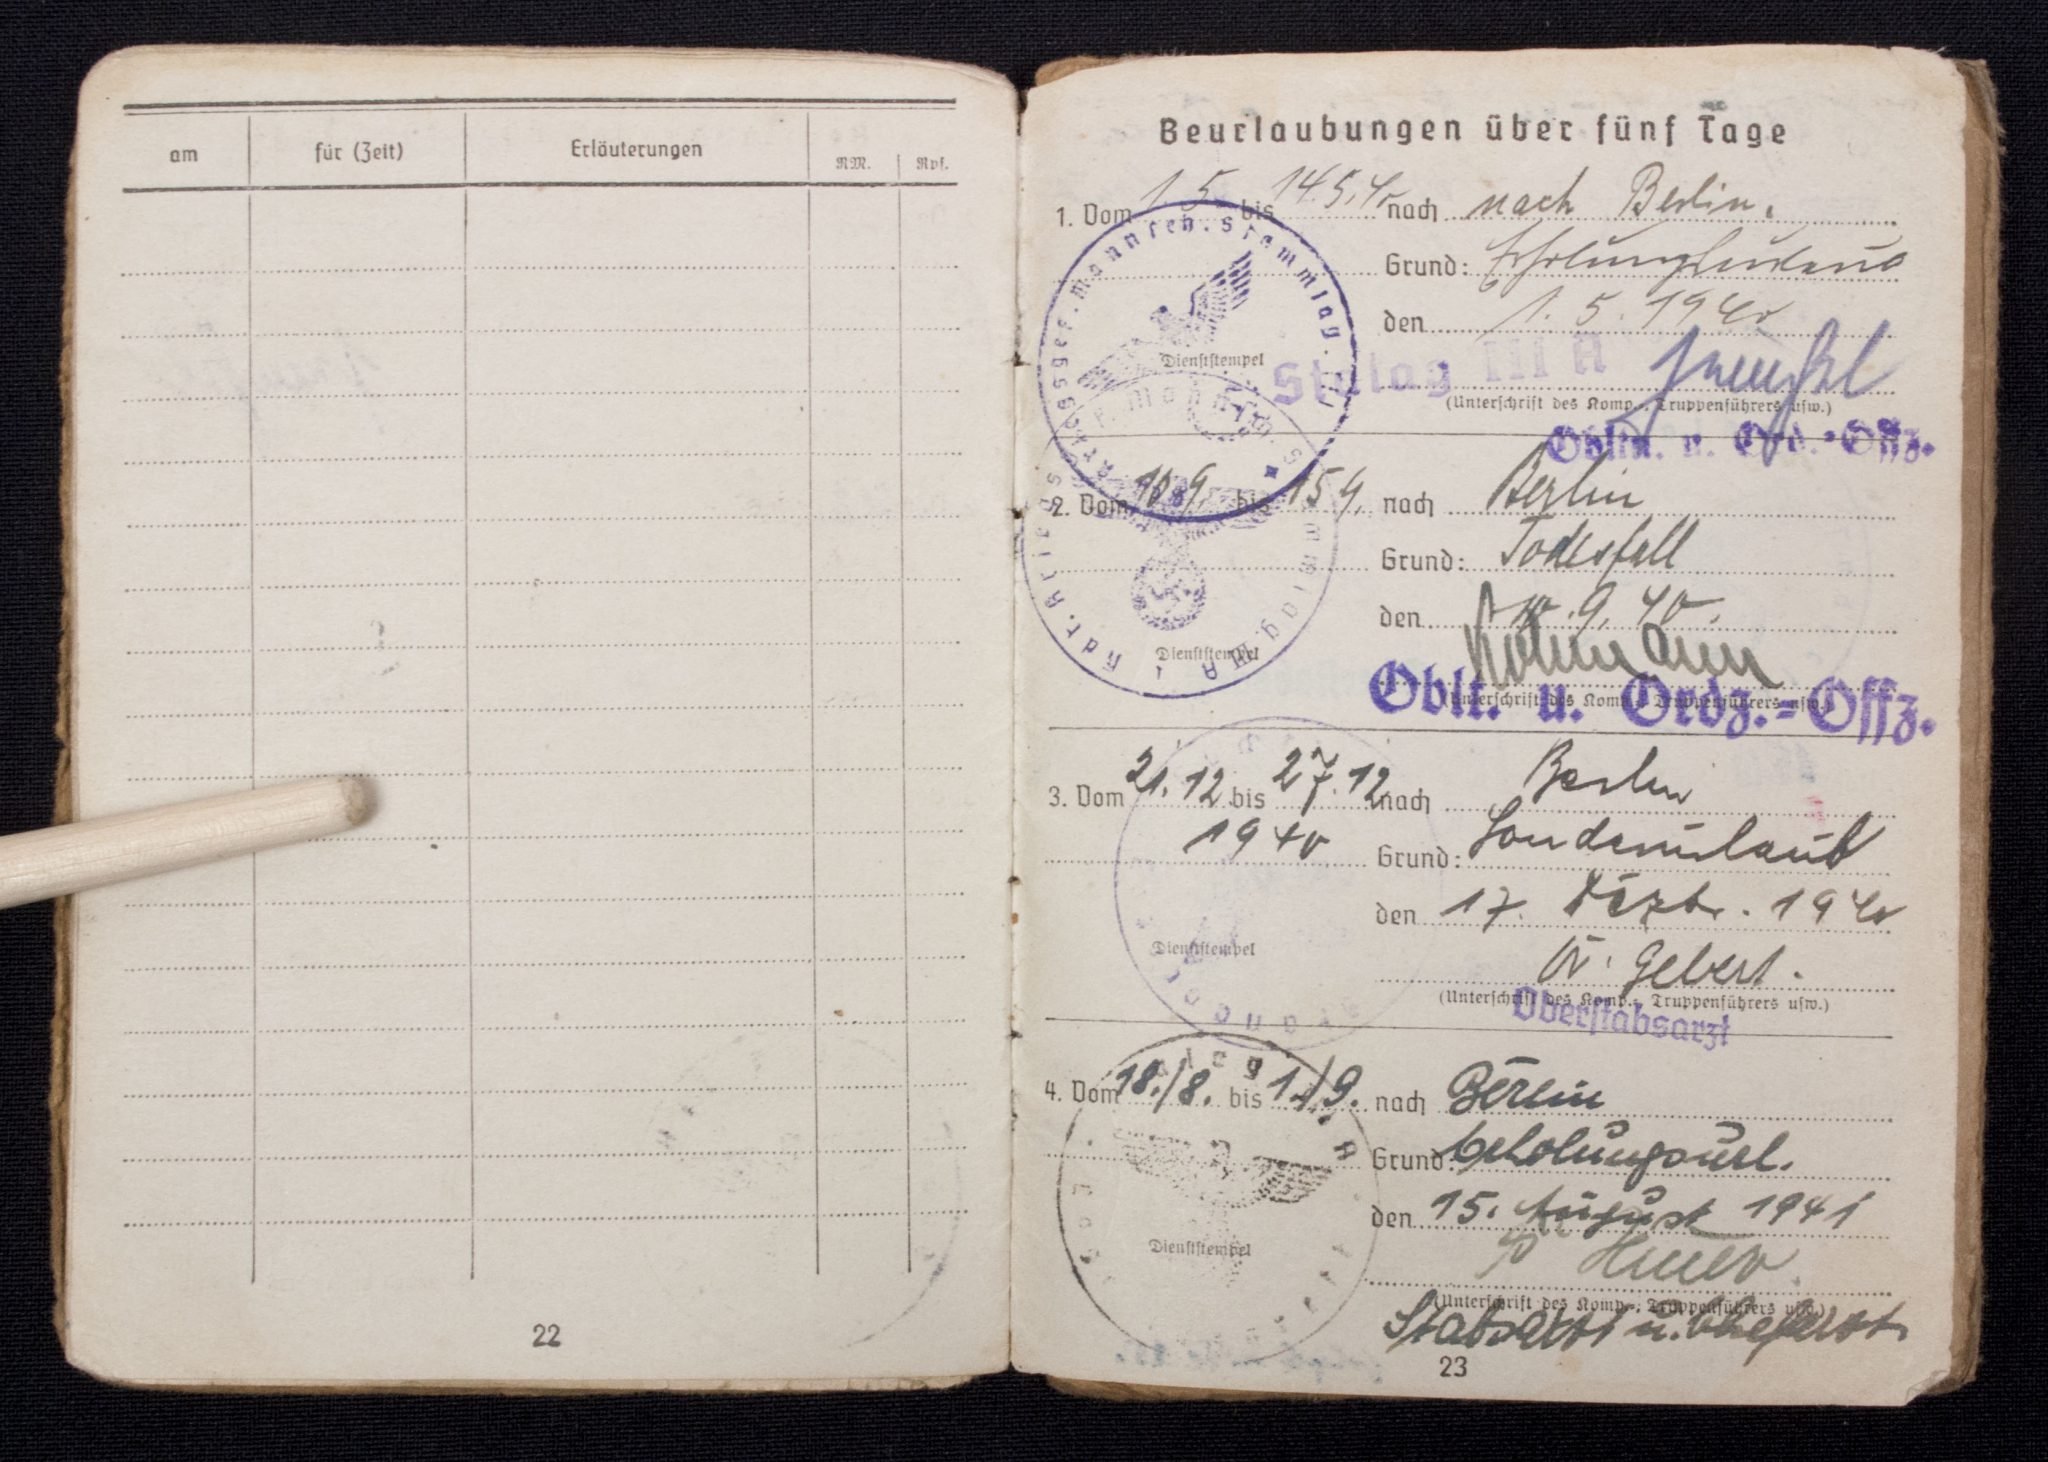 am für (Zeit) Erläuterungen RM. Rpf.
22
Beurlaubungen über fünf Tage
1. Vom 1.5. bis 14.5.40 nach nach Berlin.
Grund: Erholungsurlaub
den 1.5.1940
Dienststempel
Stalag III A
(Unterschrift des Komp.-, Truppenführers usw.)
Oblin. u. Ord.-Offz.
2. Vom 10.9. bis 15.9. nach Berlin
Grund: Todesfall
den 10.9.40.
Dienststempel
(Unterschrift des Komp.-, Truppenführers usw.)
Oblt. u. Ordz.-Offz.
3. Vom 21.12 bis 27.12 nach Berlin
1940 Grund: Sonderurlaub
den 17. Dezbr. 1940
Dr. Gebert.
Dienststempel
(Unterschrift des Komp.-, Truppenführers usw.)
Oberstabsarzt
4. Vom 18./8. bis 1./9. nach Berlin
Grund: Erholungsurl.
den 15. August 1941
Dienststempel
(Unterschrift des Komp.-, Truppenführers usw.)
Stabsarzt u. Chefarzt
23